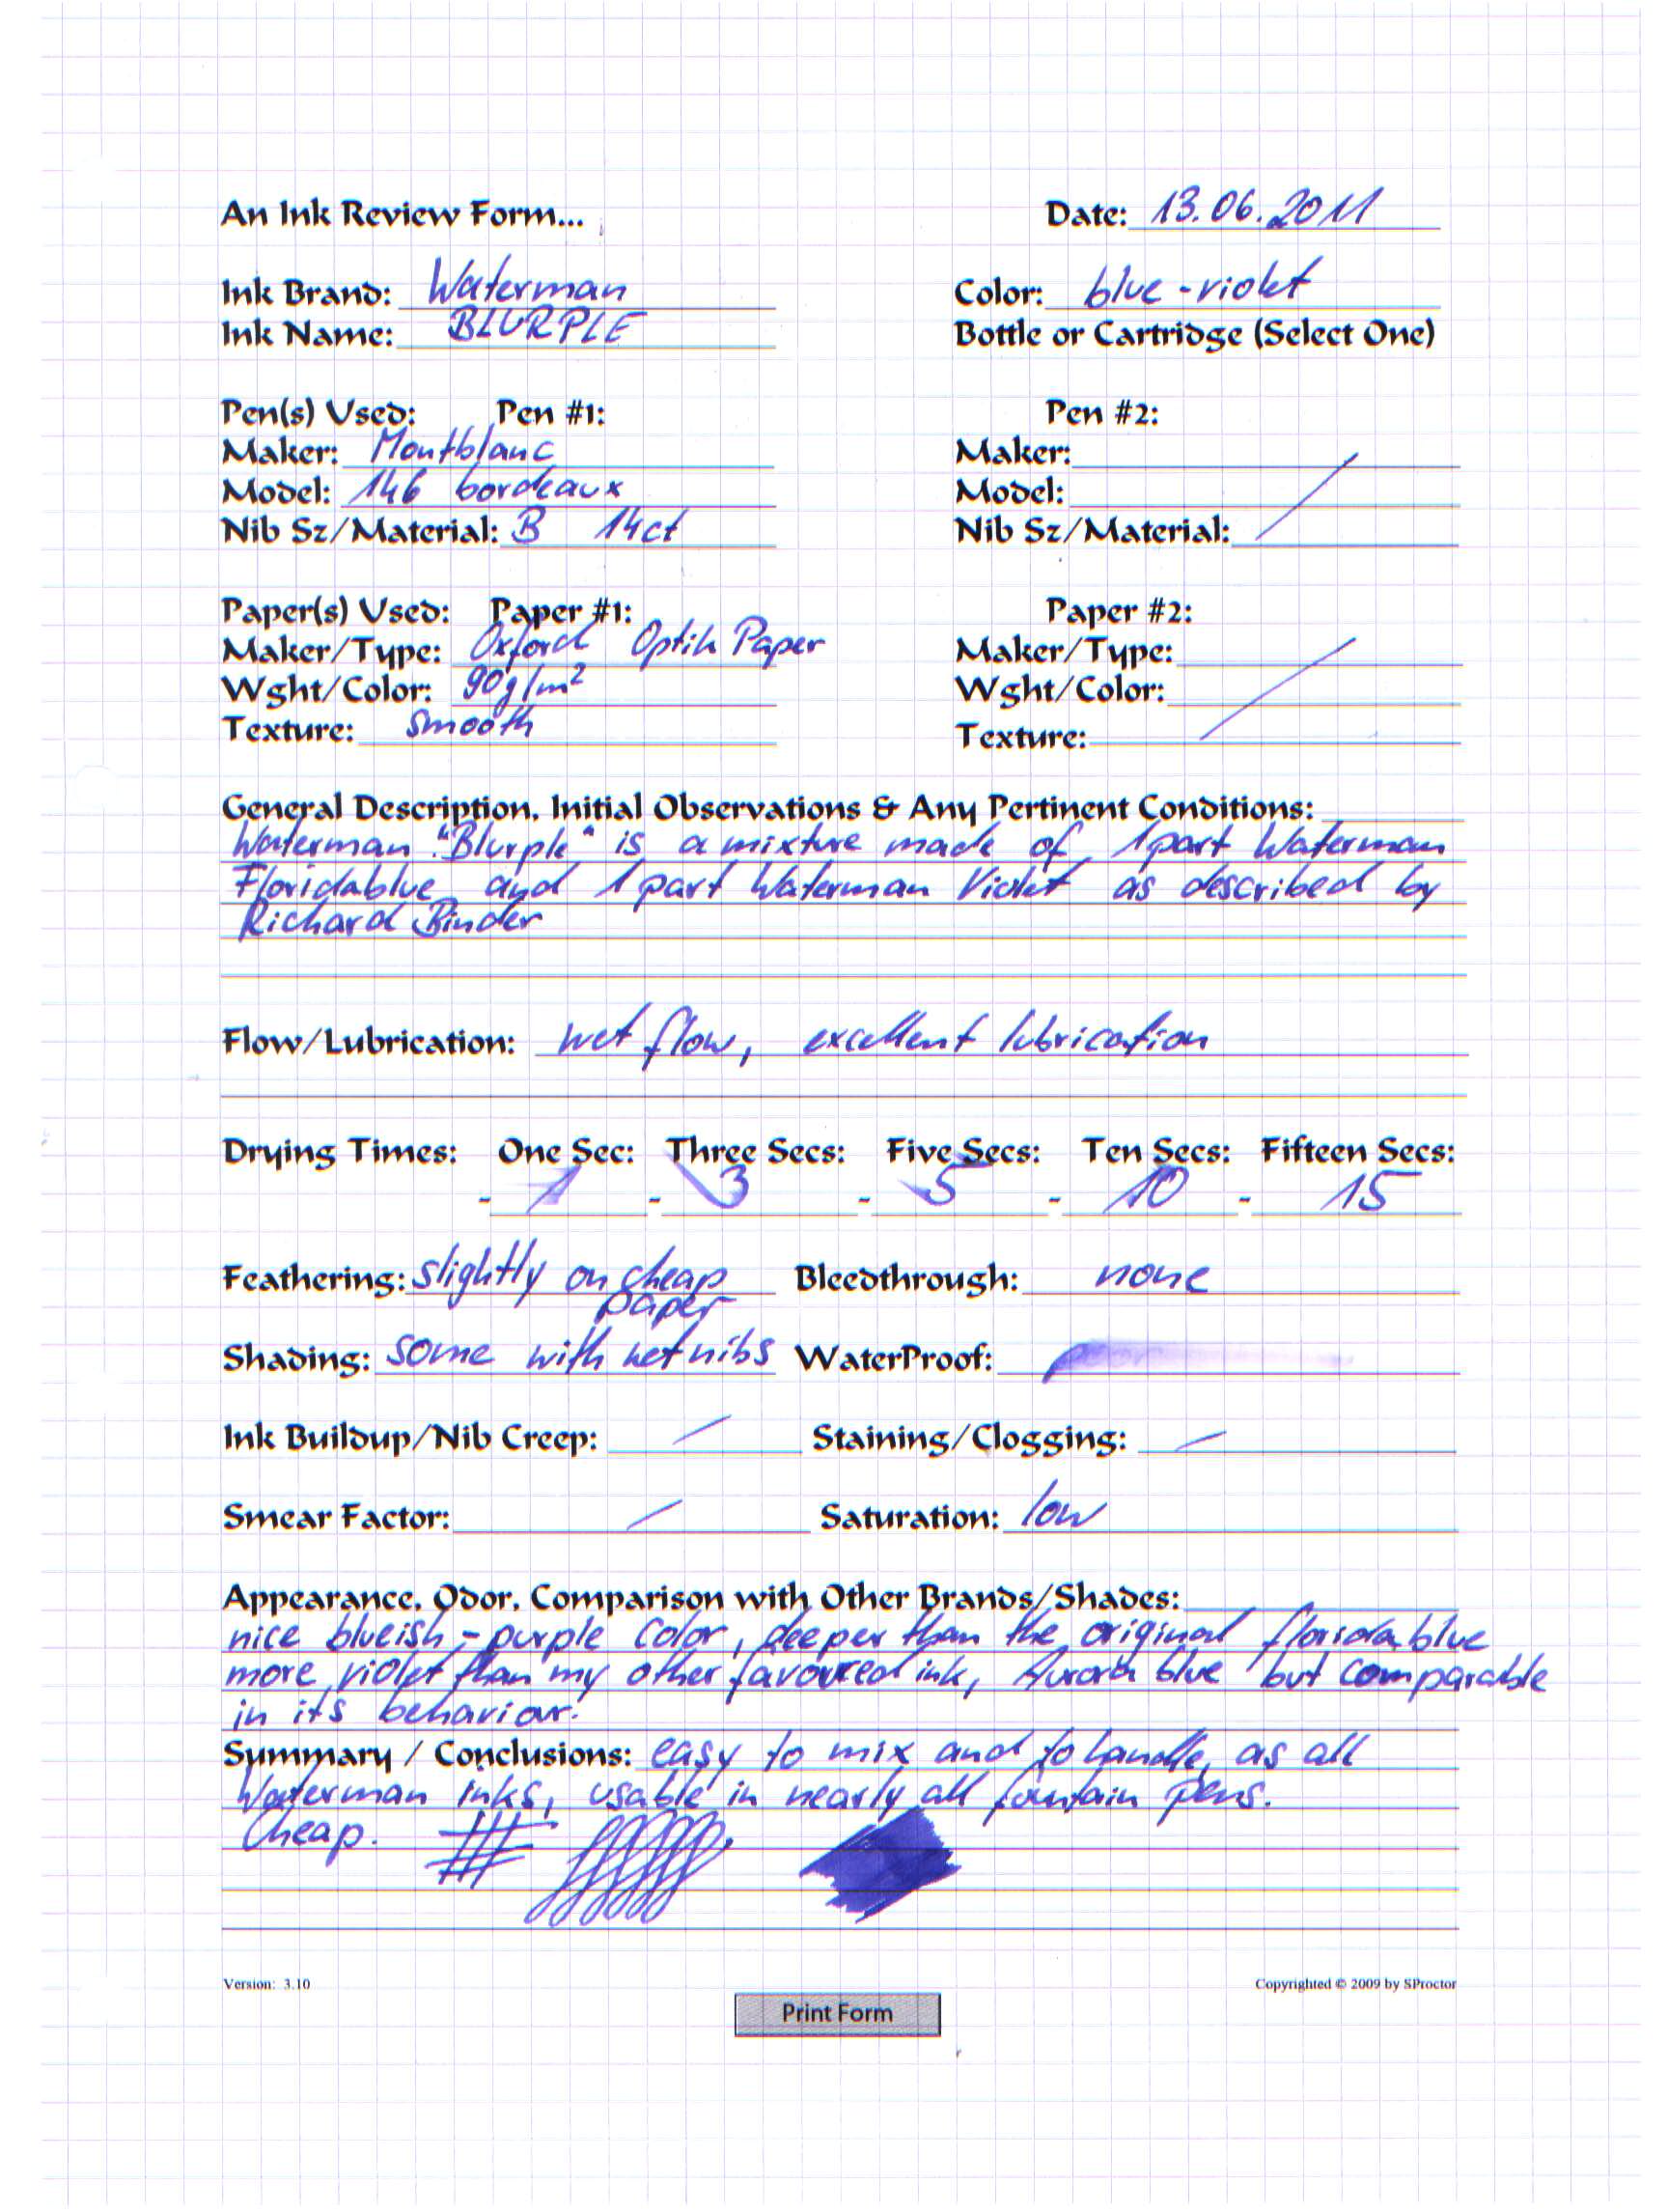 An Ink Review Form... Date: 13.06.2011
Ink Brand: Waterman Color: blue-violet
Ink Name: BLURPLE Bottle or Cartridge (Select One)
Pen(s) Used: Pen #1: Pen #2:
Maker: Montblanc Maker:
Model: 146 bordeaux Model:
Nib Sz/Material: B 14ct Nib Sz/Material:
Paper(s) Used: Paper #1: Paper #2:
Maker/Type: Oxford Optik Paper Maker/Type:
Wght/Color: 90g/m² Wght/Color:
Texture: smooth Texture:
General Description, Initial Observations & Any Pertinent Conditions:
Waterman "Blurple" is a mixture made of 1 part Waterman
Floridablue and 1 part Waterman Violet as described by
Richard Binder
Flow/Lubrication: wet flow, excellent lubrication
Drying Times: One Sec: Three Secs: Five Secs: Ten Secs: Fifteen Secs:
- 1 - 3 - 5 - 10 - 15
Feathering: slightly on cheap Bleedthrough: none
paper
Shading: some with wet nibs WaterProof: poor
Ink Buildup/Nib Creep: / Staining/Clogging: /
Smear Factor: / Saturation: low
Appearance, Odor, Comparison with Other Brands/Shades:
nice blueish-purple color, deeper than the original floridablue
more violet than my other favoured ink, Aurora blue but comparable
in its behaviour.
Summary / Conclusions: easy to mix and to handle, as all
Waterman inks, usable in nearly all fountain pens.
Cheap.
Version: 3.10 Copyrighted © 2009 by SProctor
Print Form